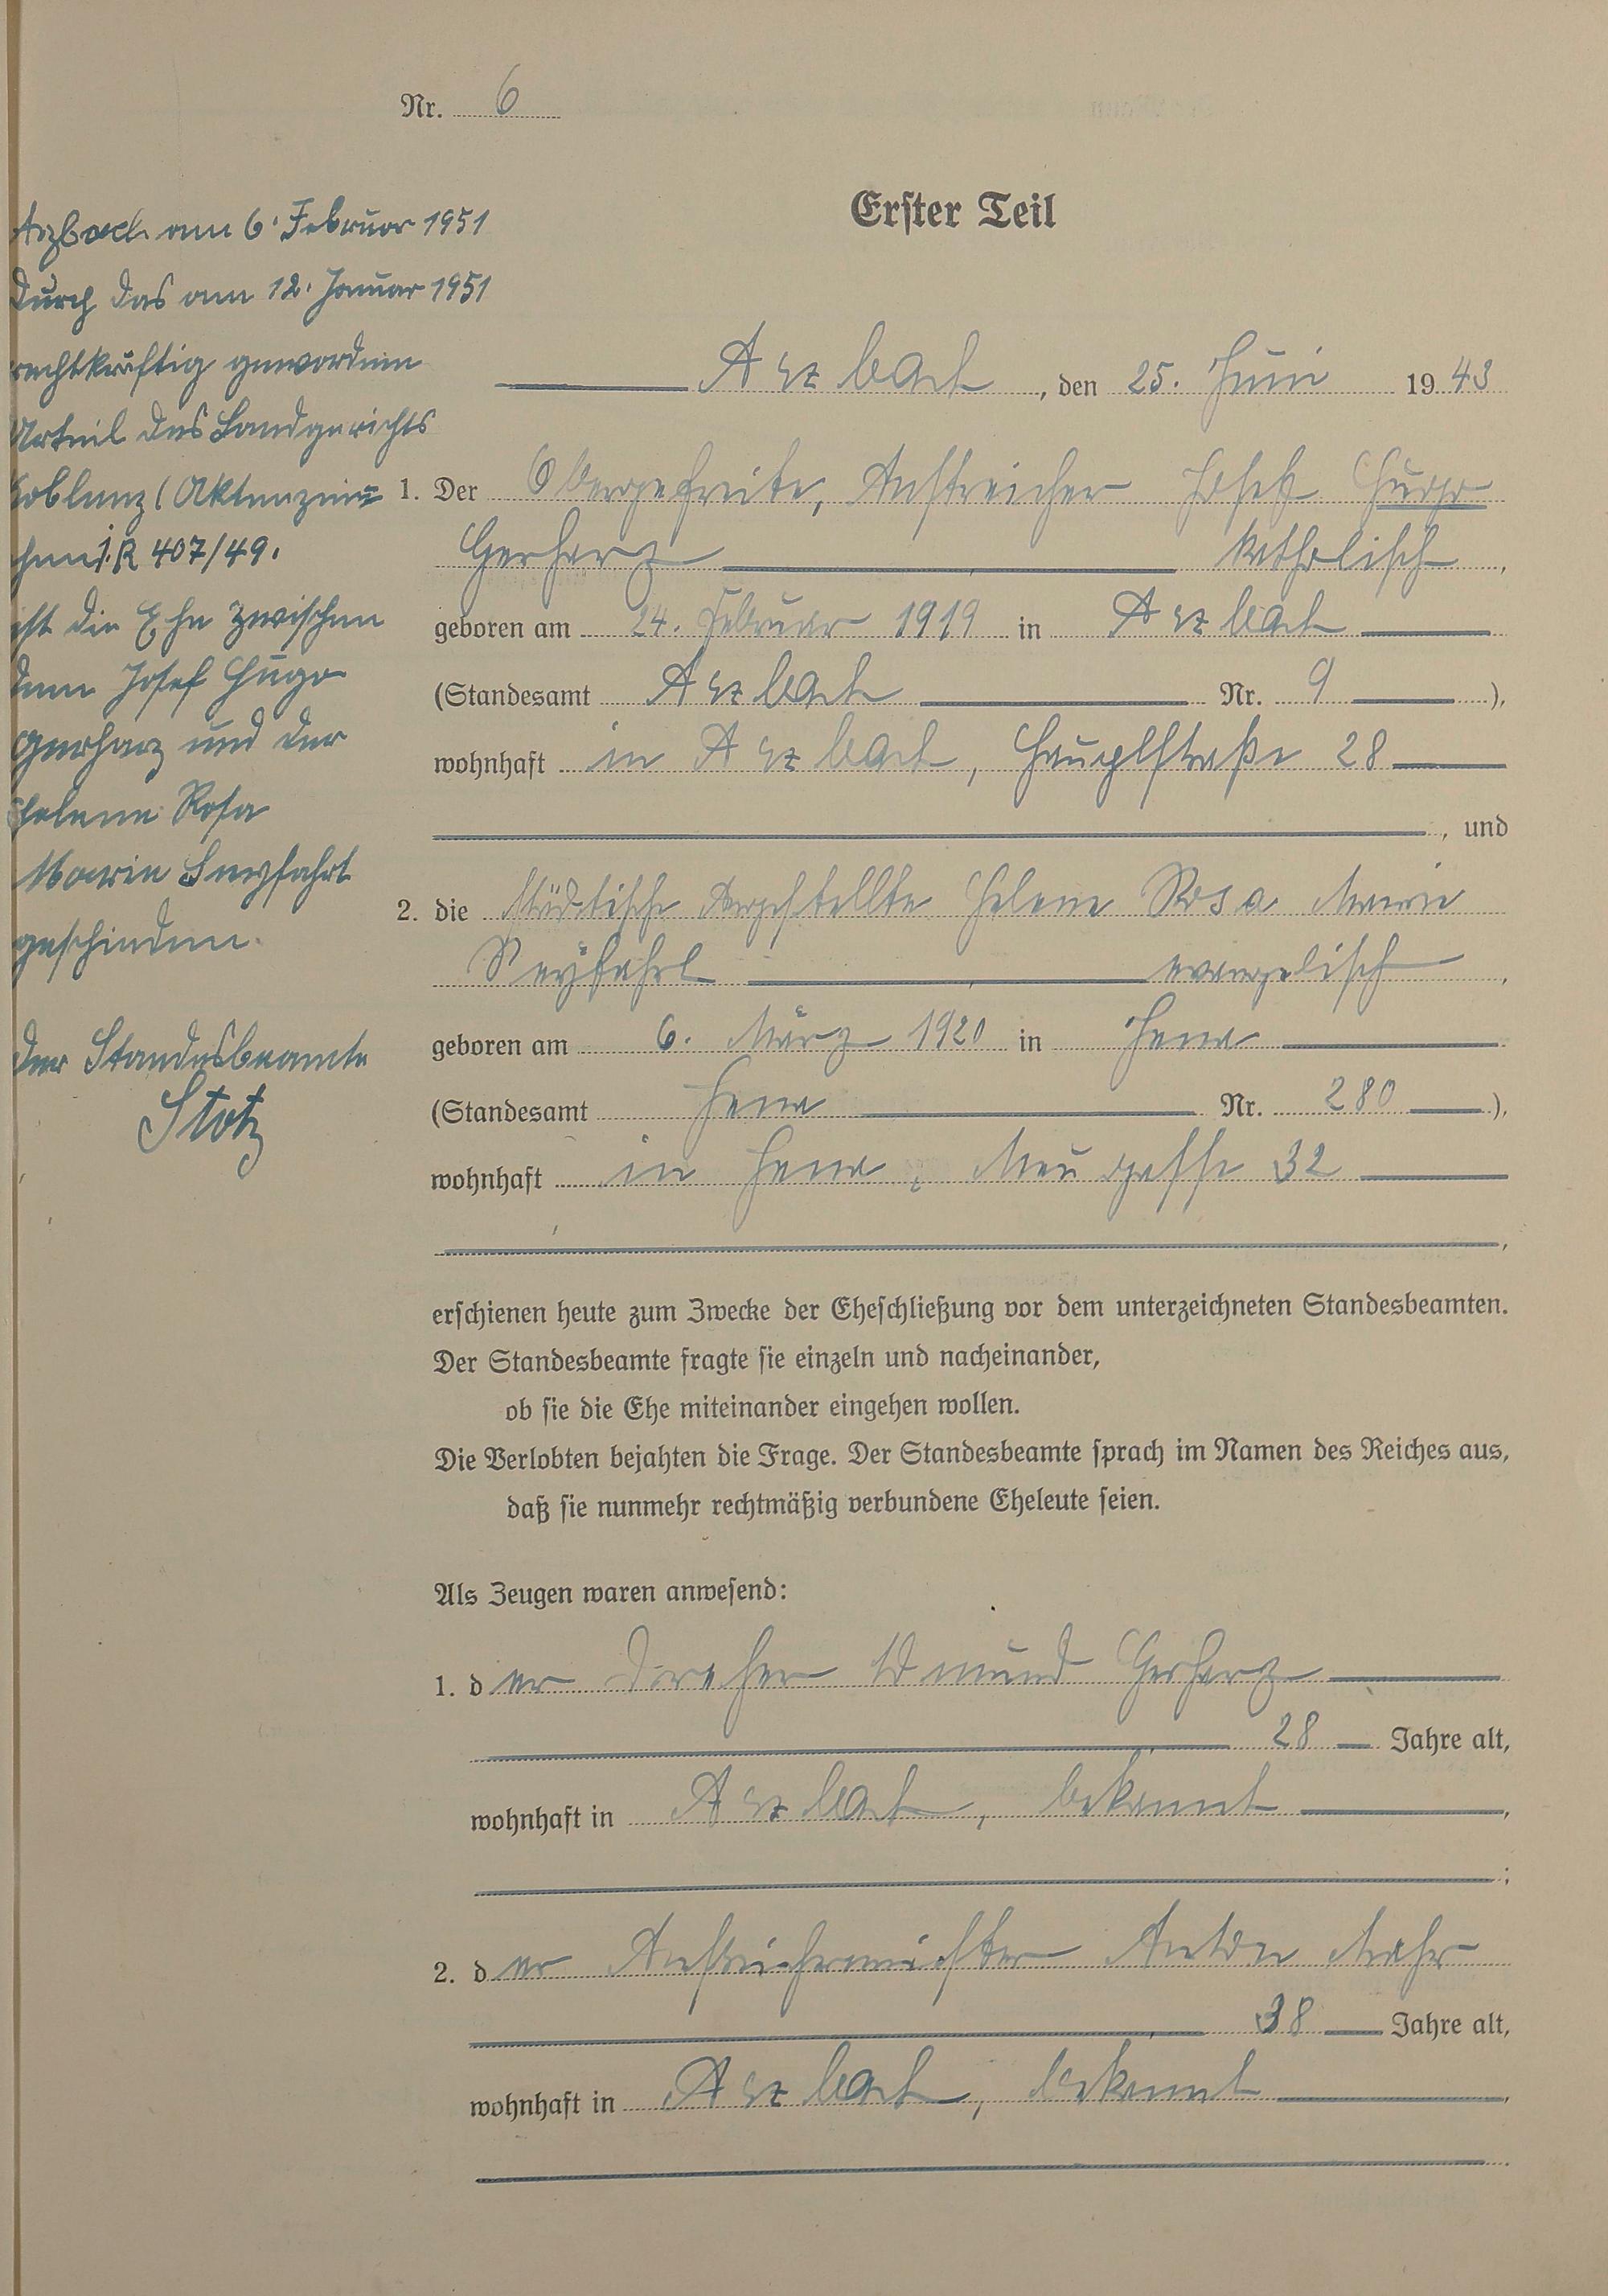 Nr. 6
Erster Teil
Arzbach am 6. Februar 1951
durch das am 12. Januar 1951
rechtkräftig gewordene
Urteil des Landgerichts
Koblenz (Aktenzei=
chen 1. R 407/49.
ist die Ehe zwischen
dem Josef Hugo
Gerharz und der
Helene Rosa
Marie Seyfahrt
geschieden.
Der Standesbeamte
Stotz
Arzbach, den 25. Juni 1943
1. Der Obergefreite, Anstreicher Josef Hugo
Gerharz katholisch,
geboren am 24. Februar 1919 in Arzbach
(Standesamt Arzbach Nr. 9),
wohnhaft in Arzbach, Hauptstraße 28
, und
2. die städtische Angestellte Helene Rosa Marie
Seyfahrt evangelisch,
geboren am 6. März 1920 in Jena
(Standesamt Jena Nr. 280),
wohnhaft in Jena, Neugasse 32
,
erschienen heute zum Zwecke der Eheschließung vor dem unterzeichneten Standesbeamten.
Der Standesbeamte fragte sie einzeln und nacheinander,
ob sie die Ehe miteinander eingehen wollen.
Die Verlobten bejahten die Frage. Der Standesbeamte sprach im Namen des Reiches aus,
daß sie nunmehr rechtmäßig verbundene Eheleute seien.
Als Zeugen waren anwesend:
1. der Dreher Edmund Gerharz
28 Jahre alt,
wohnhaft in Arzbach, bekannt,
;
2. der Anstreichermeister Anton Mahr
38 Jahre alt,
wohnhaft in Arzbach, bekannt,
.